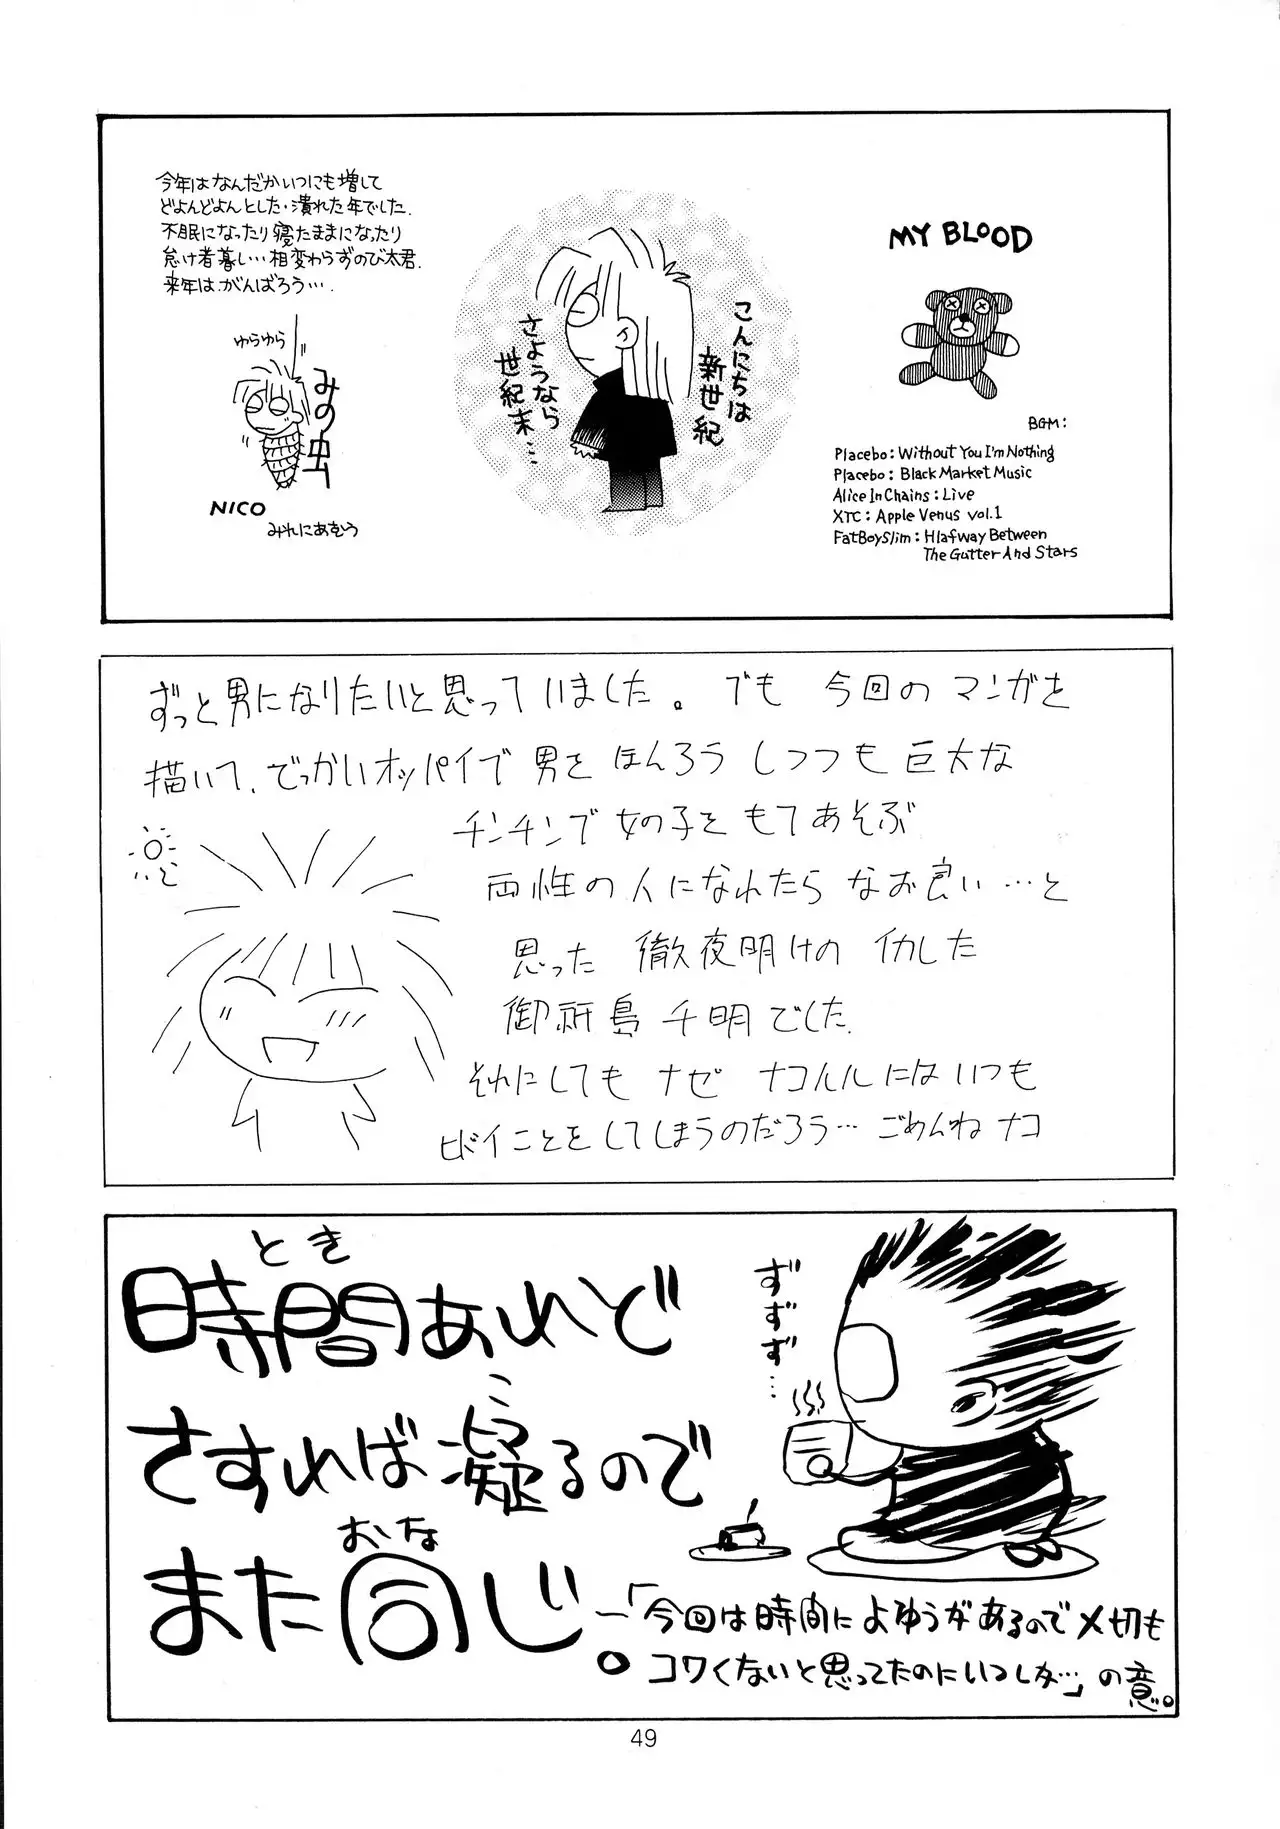 今年はなんだかいつにも増して
どよんどよんとした・潰れた年でした.
不眠になったり寝たままになったり
怠け者暮し…相変わらずのび太君.
来年は、がんばろう….
ゆらゆら
みの虫
NICO
みれにあむう
こんにちは
新世紀
さようなら
世紀末…
MY BLOOD
BGM:
Placebo: Without You I'm Nothing
Placebo: Black Market Music
Alice In Chains: Live
XTC: Apple Venus vol.1
FatBoySlim: Hlafway Between
The Gutter And Stars
ずっと男になりたいと思っていました。でも 今回のマンガを
描いて、でっかいオッパイで男を ほんろう しつつも 巨大な
チンチンで女の子を もてあそぶ
両性の人になれたら なお良い…と
思った 徹夜明けの イカした
御祈島 千明でした.
それにしても ナゼ ナコルルにはいつも
ヒドイことをしてしまうのだろう… ごめんね ナコ
とき
時間あれど
さすれば凝るので
こ
また同じ。
おな
ずずず…
―「今回は時間によゆうがあるので〆切も
コワくないと思ってたのにいつしか…」の意。
49